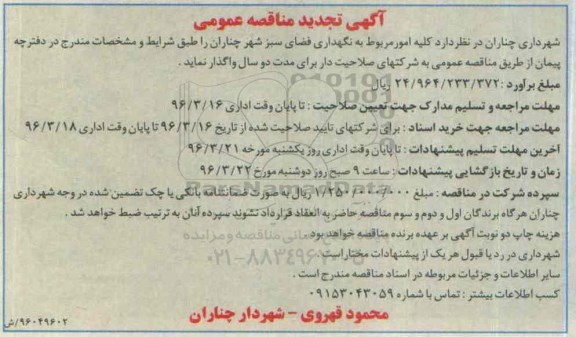 آگهی تجدید مناقصه عمومی
شهرداری چناران در نظر دارد کلیه امور مربوط به نگهداری فضای سبز شهر چناران را طبق شرایط و مشخصات مندرج در دفترچه
پیمان از طریق مناقصه عمومی به شرکتهای صلاحیت دار برای مدت دو سال واگذار نماید .
مبلغ برآورد : ۲۴/۹۶۴/۲۳۳/۳۷۲ ریال
مهلت مراجعه و تسلیم مدارک جهت تعیین صلاحیت : تا پایان وقت اداری ۹۶/۳/۱۶
مهلت مراجعه جهت خرید اسناد : برای شرکتهای تایید صلاحیت شده از تاریخ ۹۶/۳/۱۶ تا پایان وقت اداری ۹۶/۳/۱۸
آخرین مهلت تسلیم پیشنهادات : تا پایان وقت اداری روز یکشنبه مورخه ۹۶/۳/۲۱
زمان و تاریخ بازگشایی پیشنهادات : ساعت ۹ صبح روز دوشنبه مورخ ۹۶/۳/۲۲
سپرده شرکت در مناقصه : مبلغ ۱/۲۵۰/۰۰۰/۰۰۰ ریال به صورت ضمانتنامه بانکی یا چک تضمین شده در وجه شهرداری
چناران هرگاه برندگان اول و دوم و سوم مناقصه حاضر به انعقاد قرارداد نشوند سپرده آنان به ترتیب ضبط خواهد شد .
هزینه چاپ دو نوبت آگهی بر عهده برنده مناقصه خواهد بود.
شهرداری در رد یا قبول هر یک از پیشنهادات مختار است
سایر اطلاعات و جزئیات مربوطه در اسناد مناقصه مندرج است .
کسب اطلاعات بیشتر : تماس با شماره ۰۹۱۵۳۰۴۳۰۵۹
محمود قهروی - شهردار چناران
۹۶۰۴۹۶۰۲/ش
۰۲۱-۸۸۳۴۹۶۷۰